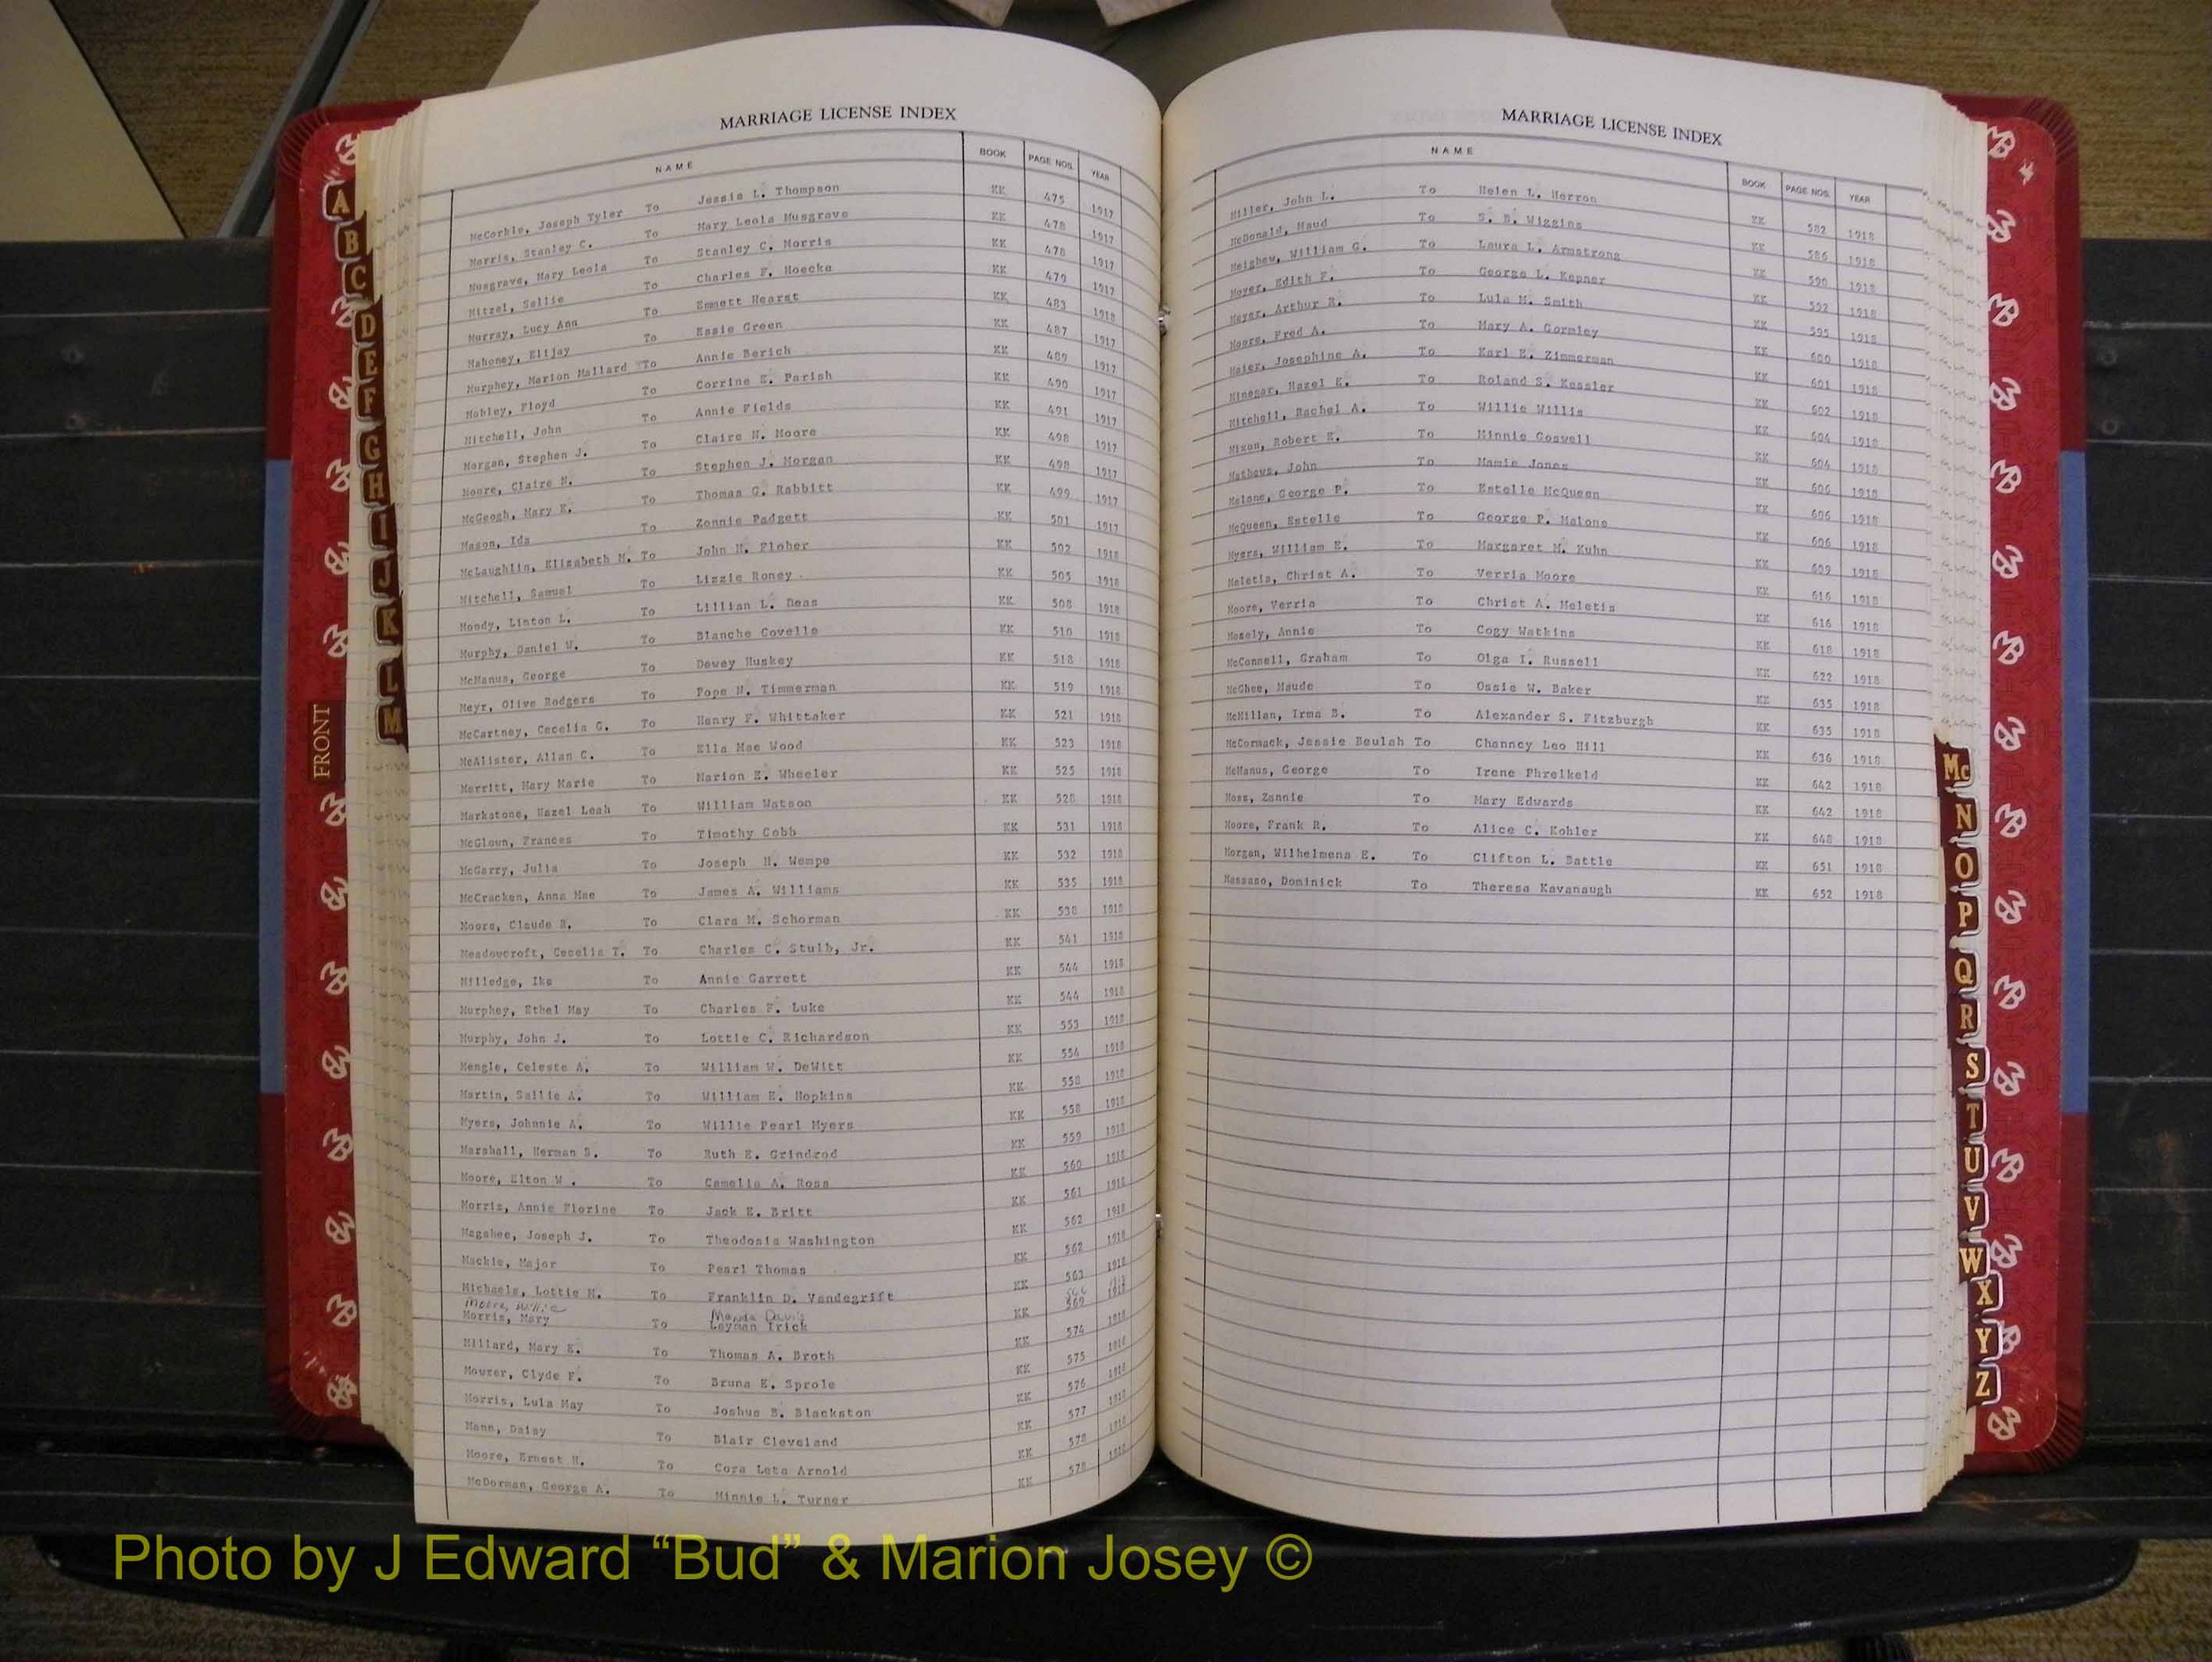 MARRIAGE LICENSE INDEX
NAME BOOK PAGE NOS. YEAR
McCorkle, Joseph Tyler To Jessie L. Thompson KK 475 1917
Morris, Stanley C. To Mary Leola Musgrave KK 478 1917
Musgrave, Mary Leola To Stanley C. Morris KK 478 1917
Mitzel, Sallie To Charles F. Hoecke KK 479 1917
Murray, Lucy Ann To Emmett Hearst KK 483 1918
Mahoney, Elijay To Essie Green KK 487 1917
Murphey, Marion Mallard To Annie Berich KK 489 1917
Mobley, Floyd To Corrine E. Parish KK 490 1917
Mitchell, John To Annie Fields KK 491 1917
Morgan, Stephen J. To Claire N. Moore KK 498 1917
Moore, Claire N. To Stephen J. Morgan KK 498 1917
McGeogh, Mary E. To Thomas G. Rabbitt KK 499 1917
Mason, Ida To Zonnie Padgett KK 501 1917
McLaughlin, Elizabeth M. To John H. Floher KK 502 1918
Mitchell, Samuel To Lizzie Roney KK 505 1918
Moody, Linton L. To Lillian L. Deas KK 508 1918
Murphy, Daniel W. To Blanche Covelle KK 510 1918
McManus, George To Dewey Huskey KK 518 1918
Meyr, Olive Rodgers To Pope N. Timmerman KK 519 1918
McCartney, Cecelia G. To Henry F. Whittaker KK 521 1918
McAlister, Allan C. To Ella Mae Wood KK 523 1918
Merritt, Mary Marie To Marion E. Wheeler KK 525 1918
Markstone, Hazel Leah To William Watson KK 528 1918
McGloun, Frances To Timothy Cobb KK 531 1918
McGarry, Julia To Joseph H. Wempe KK 532 1918
McCracken, Anna Mae To James A. Williams KK 535 1918
Moore, Claude R. To Clara M. Schorman KK 538 1918
Meadowcroft, Cecelia T. To Charles C. Stulb, Jr. KK 541 1918
Milledge, Ike To Annie Garrett KK 544 1918
Murphey, Ethel May To Charles F. Luke KK 544 1918
Murphy, John J. To Lottie C. Richardson KK 553 1918
Mengle, Celeste A. To William W. DeWitt KK 554 1918
Martin, Sallie A. To William E. Hopkins KK 558 1918
Myers, Johnnie A. To Willie Pearl Myers KK 558 1918
Marshall, Herman S. To Ruth E. Grindrod KK 559 1918
Moore, Elton W. To Camelia A. Ross KK 560 1918
Morris, Annie Florine To Jack E. Britt KK 561 1918
Magahee, Joseph J. To Theodosia Washington KK 562 1918
Mackie, Major To Pearl Thomas KK 562 1918
Michaels, Lottie M. To Franklin D. Vandegrift KK 563 1918
Moore, Willie Davis
Morris, Mary To Layman Trick KK 569 1918
Millard, Mary E. To Thomas A. Broth KK 574 1918
Mourer, Clyde F. To Bruna E. Sprole KK 575 1918
Morris, Lula May To Joshua B. Blackston KK 576 1918
Mann, Daisy To Blair Cleveland KK 577 1918
Moore, Ernest H. To Cora Leta Arnold KK 578 1918
McDorman, George A. To Minnie L. Turner KK 578 1918
MARRIAGE LICENSE INDEX
NAME BOOK PAGE NOS. YEAR
Miller, John L. To Helen L. Herron KK 582 1918
McDonald, Maud To S. B. Wiggins KK 586 1918
Meighew, William G. To Laura L. Armstrong KK 590 1918
Moyer, Edith F. To George L. Kepner KK 592 1918
Meyer, Arthur R. To Lula M. Smith KK 595 1918
Moore, Fred A. To Mary A. Gormley KK 600 1918
Maier, Josephine A. To Karl E. Zimmerman KK 601 1918
Minegar, Hazel K. To Roland S. Kessler KK 602 1918
Mitchell, Rachel A. To Willie Willis KK 604 1918
Mixon, Robert E. To Minnie Goswell KK 604 1918
Mathews, John To Mamie Jones KK 606 1918
Malone, George P. To Estelle McQueen KK 606 1918
McQueen, Estelle To George P. Malone KK 606 1918
Myers, William E. To Margaret M. Kuhn KK 609 1918
Meletis, Christ A. To Verria Moore KK 616 1918
Moore, Verria To Christ A. Meletis KK 616 1918
Mosely, Annie To Cogy Watkins KK 618 1918
McConnell, Graham To Olga I. Russell KK 622 1918
McGhee, Maude To Ossie W. Baker KK 635 1918
McMillan, Irma B. To Alexander S. Fitzburgh KK 635 1918
McCormack, Jessie Beulah To Channcy Leo Hill KK 636 1918
McManus, George To Irene Phrelkeld KK 642 1918
Moss, Zannie To Mary Edwards KK 642 1918
Moore, Frank R. To Alice C. Kohler KK 648 1918
Morgan, Wilhelmena E. To Clifton L. Battle KK 651 1918
Massaso, Dominick To Theresa Kavanaugh KK 652 1918
A
B
C
D
E
F
G
H
I
J
K
L
M
FRONT
Mc
N
O
P
Q
R
S
T
U
V
W
X
Y
Z
Photo by J Edward “Bud” & Marion Josey ©